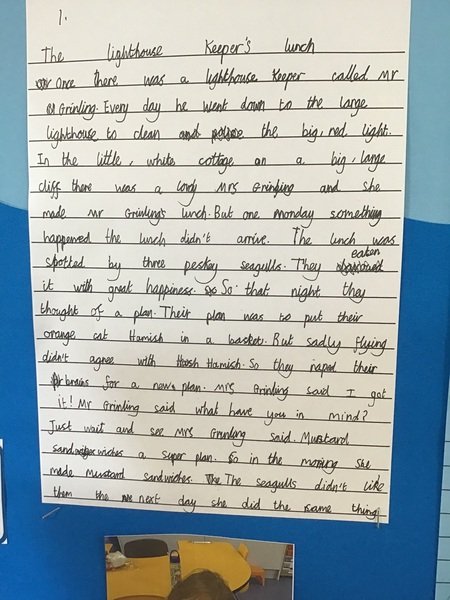 1.
The lighthouse Keeper's lunch
Once there was a lighthouse Keeper called Mr
Grinling. Every day he went down to the large
lighthouse to clean and polise the big, red, light.
In the little, white cottage on a big, large
cliff there was a Mrs Grinling and she
made Mr Grinling's lunch. But one monday something
happened the lunch didn't arrive. The lunch was
spotted by three peskey seagulls. They eaten
it with great happiness. So that night they
thought of a plan. Their plan was to put their
orange cat Hamish in a basket. But sadly flying
didn't agree with Hamish. So they raped their
brains for a new plan. Mrs Grinling said I got
it! Mr Grinling said what have you in mind?
Just wait and see Mrs Grinling said. Mustard
sandwishes a super plan. So in the morning she
made Mustard sandwishes. The seagulls didn't like
them the next day she did the same thing